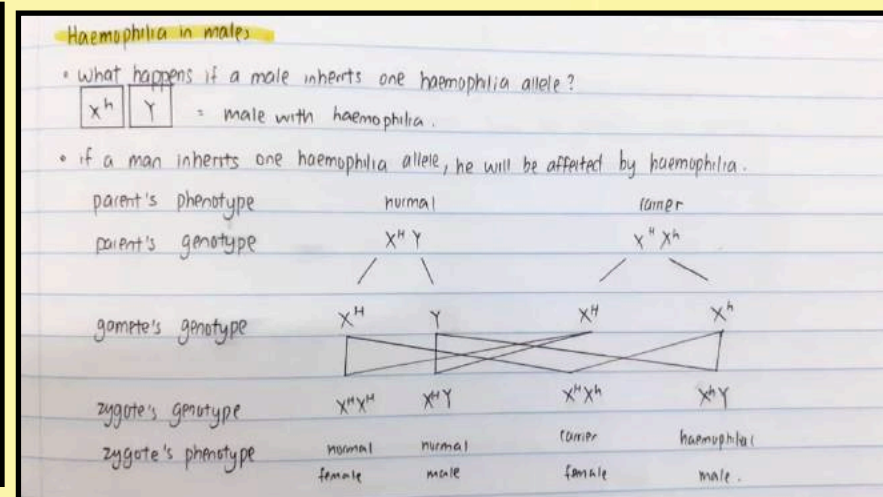 Haemophilia in males
• What happens if a male inherits one haemophilia allele?
Xʰ Y = male with haemophilia.
• if a man inherits one haemophilia allele, he will be affected by haemophilia.
parent's phenotype normal carrier
parent's genotype Xᴴ Y Xᴴ Xʰ
gamete's genotype Xᴴ Y Xᴴ Xʰ
zygote's genotype XᴴXᴴ XᴴY XᴴXʰ XʰY
zygote's phenotype normal female normal male carrier female haemophiliac male.